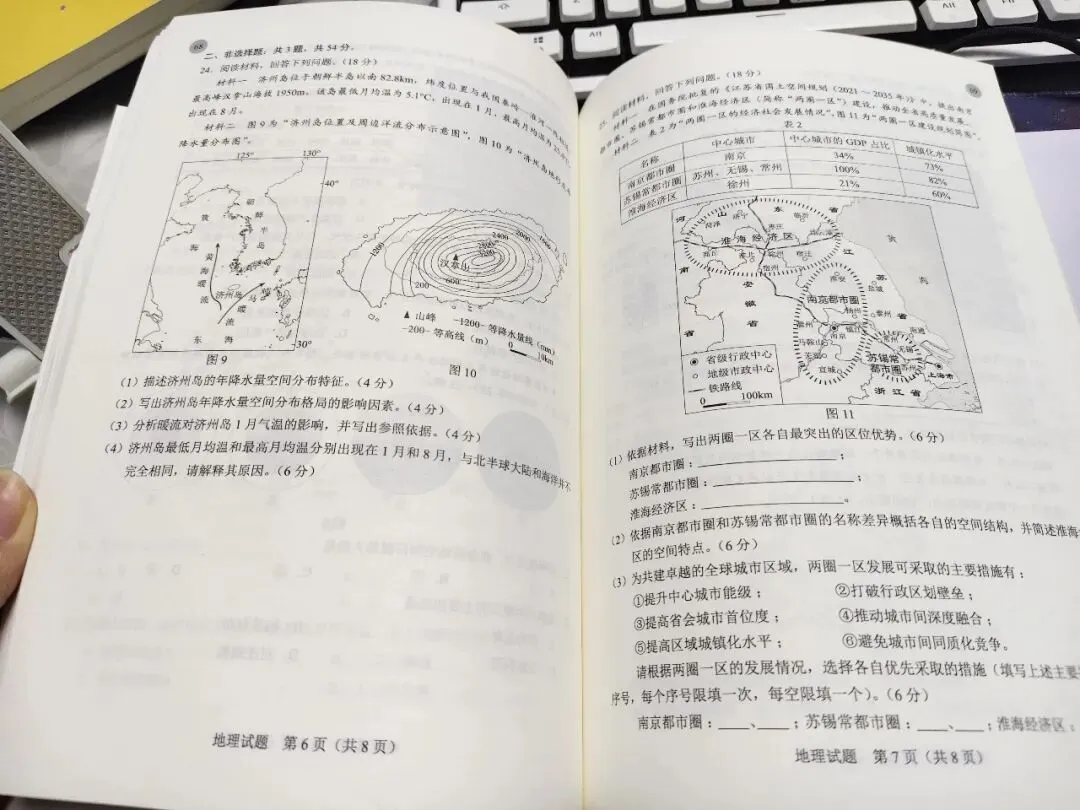 68
二、非选择题：共3题，共54分。
24. 阅读材料，回答下列问题。（18分）
材料一 济州岛位于朝鲜半岛以南82.8km，纬度位置与我国秦岭—淮河一线相近
最高峰汉拿山海拔1950m。该岛最低月均温为5.1℃，出现在1月，最高月均温为25.
出现在8月。
材料二 图9为“济州岛位置及周边洋流分布示意图”，图10为“济州岛地形及年
降水量分布图”。
125° 130°
40°
朝
鲜
半
岛
黄
海
黄
海
暖
流
济州岛
对
马
暖
流
东 海
30°
图9
1200 2400 2000 1600 1200
汉拿山
200 600
▲山峰 —1200—等降水量线（mm）
—200—等高线（m） 0 10km
图10
（1）描述济州岛的年降水量空间分布特征。（4分）
（2）写出济州岛年降水量空间分布格局的影响因素。（4分）
（3）分析暖流对济州岛1月气温的影响，并写出参照依据。（4分）
（4）济州岛最低月均温和最高月均温分别出现在1月和8月，与北半球大陆和海洋并不
完全相同，请解释其原因。（6分）
地理试题 第6页（共8页）
69
25. 阅读材料，回答下列问题。（18分）
材料一 在国务院批复的《江苏省国土空间规划（2021－2035年）》中，提出南京
都市圈、苏锡常都市圈和淮海经济区（简称“两圈一区”）建设，推动全省高质量发展。
材料二 表2为“两圈一区的经济社会发展情况”，图11为“两圈一区建设规划简图”。
表2
名称 中心城市 中心城市的GDP占比 城镇化水平
南京都市圈 南京 34% 73%
苏锡常都市圈 苏州、无锡、常州 100% 82%
淮海经济区 徐州 21% 60%
河 山 东 省
菏泽 济宁 枣庄 临沂
淮海经济区
连云港
商丘 淮北 徐州 宿迁
宿州
江
苏
省
黄
海
南
省
安
徽
省
淮安
盐城
南京都市圈
扬州
滁州 镇江
南京
马鞍山
芜湖
宣城
泰州
南通
常州
无锡
苏州
苏锡常
都市圈
上海市
浙江省
◉ 省级行政中心
○ 地级市政中心
— 铁路线
0 100km
图11
（1）依据材料，写出两圈一区各自最突出的区位优势。（6分）
南京都市圈：＿＿＿＿＿＿；
苏锡常都市圈：＿＿＿＿＿＿；
淮海经济区：＿＿＿＿＿＿。
（2）依据南京都市圈和苏锡常都市圈的名称差异概括各自的空间结构，并简述淮海
区的空间特点。（6分）
（3）为共建卓越的全球城市区域，两圈一区发展可采取的主要措施有：
①提升中心城市能级； ②打破行政区划壁垒；
③提高省会城市首位度； ④推动城市间深度融合；
⑤提高区域城镇化水平； ⑥避免城市间同质化竞争。
请根据两圈一区的发展情况，选择各自优先采取的措施（填写上述主要
序号，每个序号限填一次，每空限填一个）。（6分）
南京都市圈：＿＿、＿＿；苏锡常都市圈：＿＿、＿＿；淮海经济区：
地理试题 第7页（共8页）
Alt
Alt